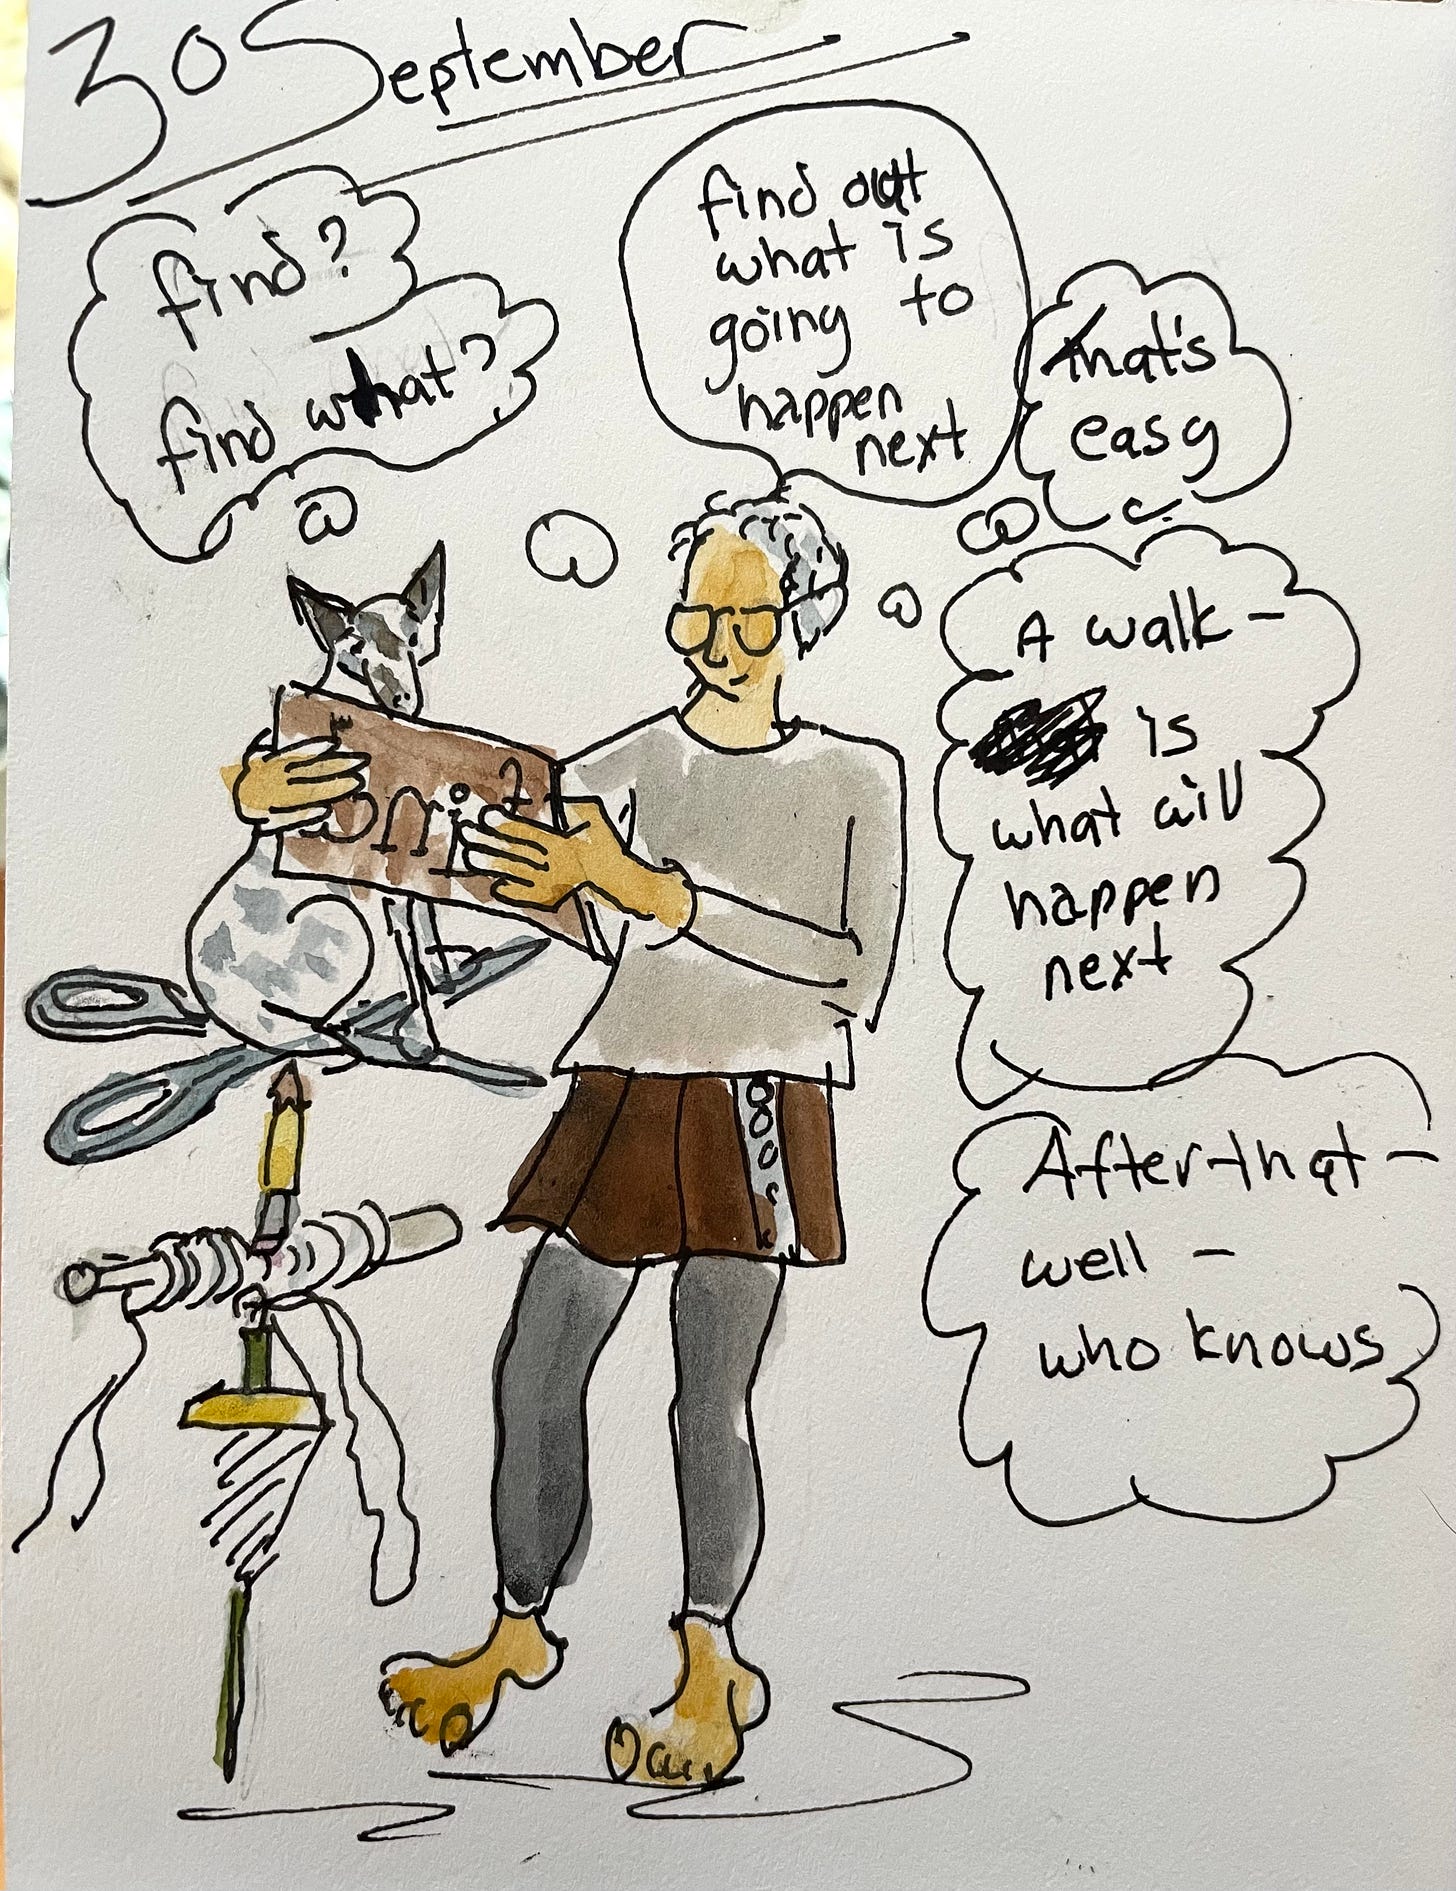 30 September
find?
find what?
find out
what is
going to
happen
next
that's
easy
A walk –
is
what will
happen
next
After that –
well –
who knows